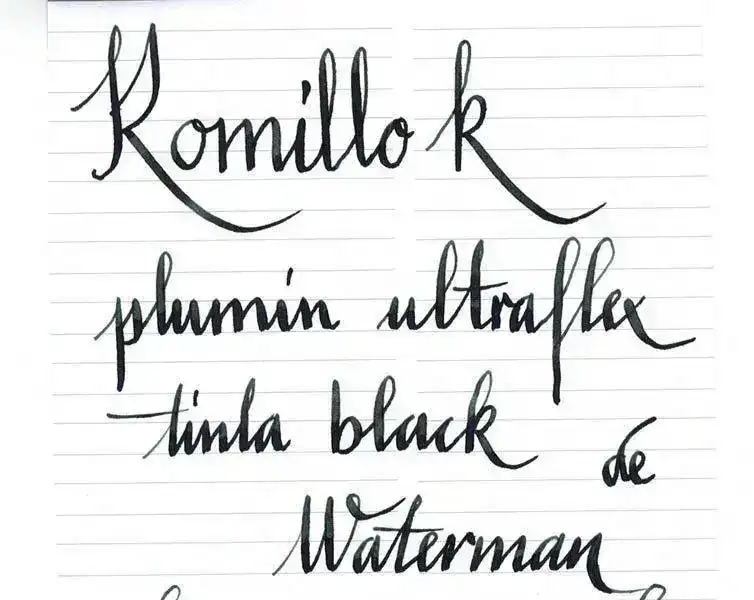 Komillo k
plumin ultraflex
tinta black
de
Waterman